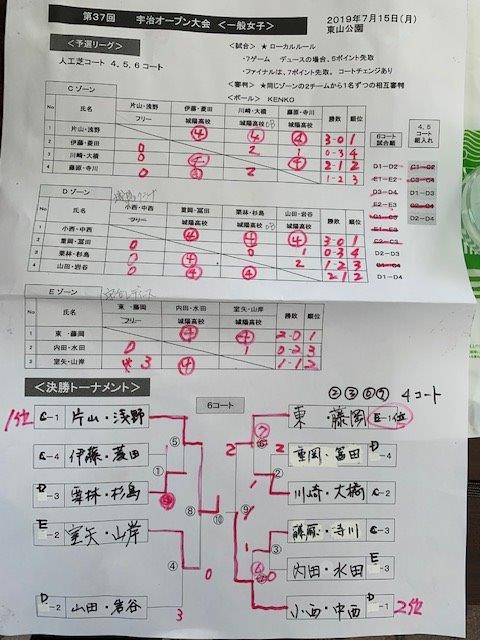 第37回 宇治オープン大会 <一般女子>
2019年7月15日(月)
東山公園
<予選リーグ>
人工芝コート 4, 5, 6コート
<試合> ★ローカルルール
・7ゲーム デュースの場合、5ポイント先取
・ファイナルは、7ポイント先取。コートチェンジあり
<審判> ★同じゾーンの2チームから1名ずつの相互審判
<ボール> KENKO
Cゾーン
No 氏名 片山・浅野 伊藤・菱田 川崎・大橋 藤原・寺川 勝数 順位
フリー 城陽高校 城陽高校OB 城陽高校
1 片山・浅野 ④ ④ ④ 3-0 1
2 伊藤・菱田 0 2 1 0-3 4
3 川崎・大橋 0 ④ ④ 2-1 2
4 藤原・寺川 0 ④ 2 1-2 3
6コート 試合組
4, 5 組入れ
D1-D2 C1-C2
E1-E2 C3-C4
D3-D4
E2-E3 D2-D4
C1-C3
E1-E3
C2-C3 D2-D3
C1-C4
D1-D4
Dゾーン
No 氏名 小西・中西 重岡・冨田 栗林・杉島 山田・岩谷 勝数 順位
フリー 城陽高校 城陽高校OB 城陽高校
1 小西・中西 ④ ④ ④ 3-0 1
2 重岡・冨田 0 0 1 0-3 4
3 栗林・杉島 0 ④ 2 1-2 3
4 山田・岩谷 0 ④ ④ 2-1 2
Eゾーン
No 氏名 東・藤岡 内田・水田 室矢・山岸 勝数 順位
フリー 城陽高校 城陽高校
1 東・藤岡 ④ ④ 2-0 1
2 内田・水田 0 1 0-2 3
3 室矢・山岸 3 ④ 1-1 2
<決勝トーナメント>
②③⑥⑦ 4コート
6コート
1位 C-1 片山・浅野
東・藤岡 E-1位
C-4 伊藤・菱田
重岡・冨田 D-4
D-3 栗林・杉島
川崎・大橋 C-2
E-2 室矢・山岸
藤原・寺川 C-3
内田・水田 E-3
D-2 山田・岩谷
小西・中西 D-1 2位